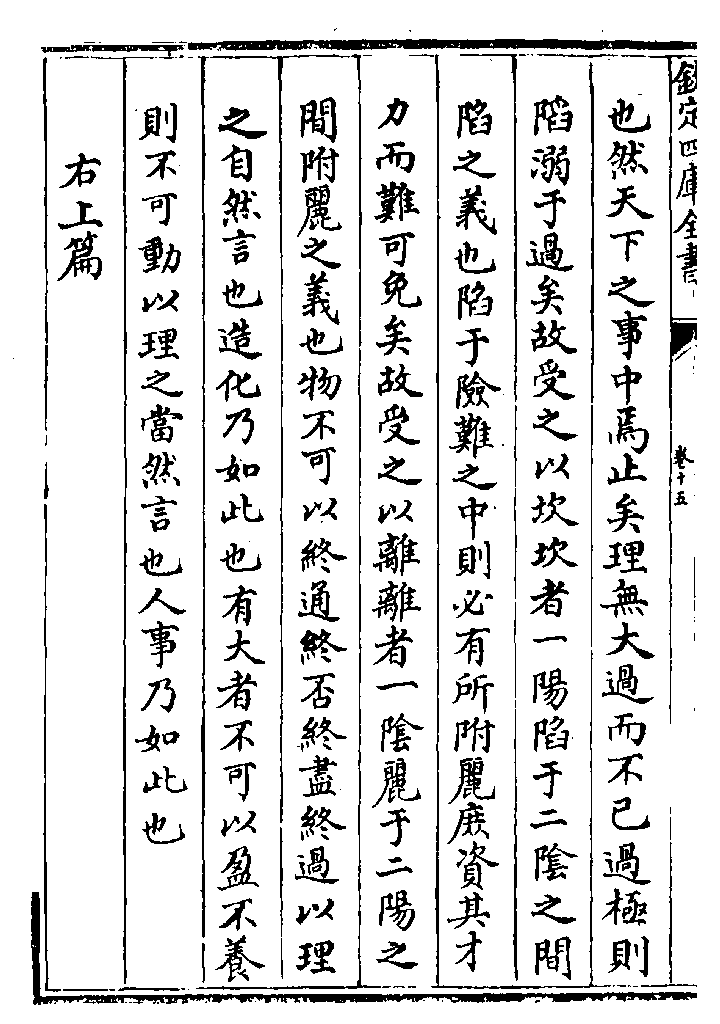 欽定四庫全書
卷十五
也然天下之事中焉止矣理無大過而不已過極則
陷溺于過矣故受之以坎坎者一陽陷于二陰之間
陷之義也陷于險難之中則必有所附麗庶資其才
力而難可免矣故受之以離離者一陰麗于二陽之
間附麗之義也物不可以終通終否終盡終過以理
之自然言也造化乃如此也有大者不可以盈不養
則不可動以理之當然言也人事乃如此也
右上篇